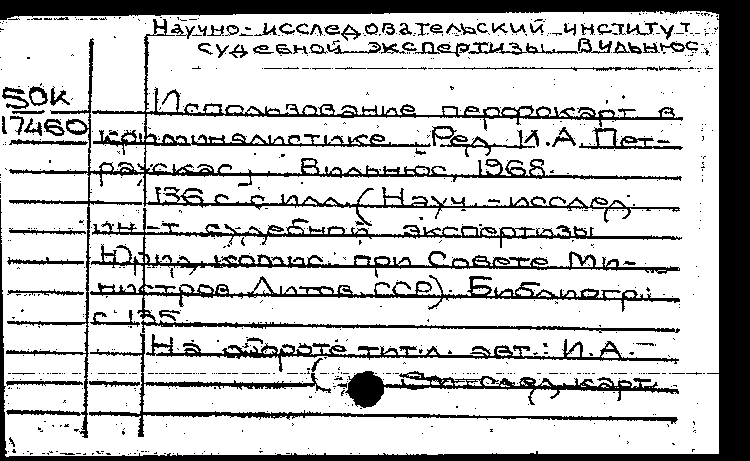 Научно-исследовательский институт
судебной экспертизы. Вильнюс.
50к
17460
Использование перфокарт в
криминалистике. Ред. И.А. Пет-
раускас. Вильнюс, 1968.
136 с. с илл. (Науч.-исслед.
ин-т судебной экспертизы
Юрид. комис. при Совете Ми-
нистров Литов. ССР). Библиогр.:
с. 135
На обороте тит. л. авт.: И.А.
См. след. карт.